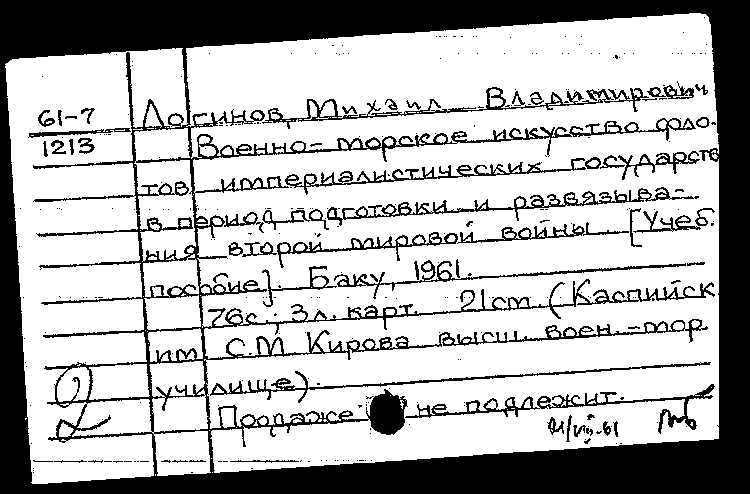 61-7 Логинов, Михаил Владимирович
1213 Военно-морское искусство фло-
тов империалистических государств
в период подготовки и развязыва-
ния второй мировой войны. [Учеб.
пособие]. Баку, 1961.
76с.; 3л. карт. 21см. (Каспийск.
им. С.М. Кирова высш. воен.-мор.
училище).
2 Продаже не подлежит.